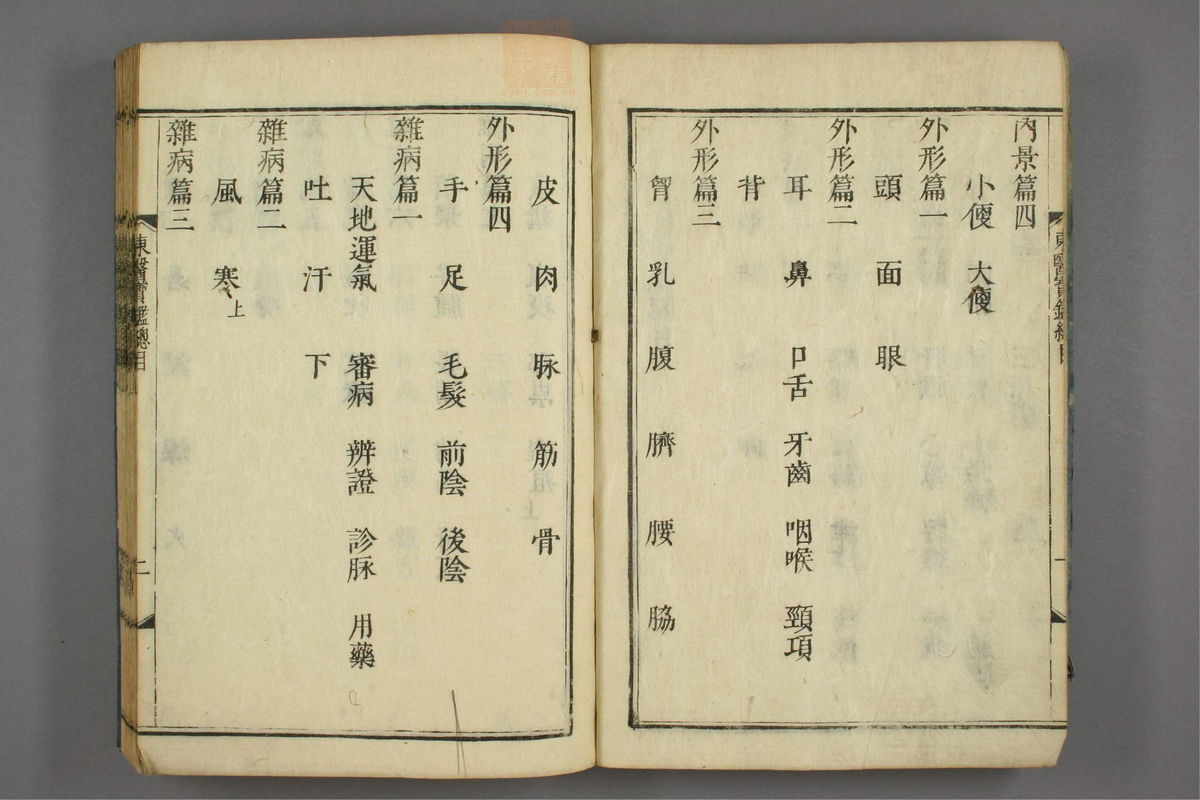 內景篇四
小便 大便
外形篇一
頭 面 眼
外形篇二
耳 鼻 口舌 牙齒 咽喉 頸項
背
外形篇三
胷 乳 腹 臍 腰 脇
皮 肉 脉 筋 骨
外形篇四
手 足 毛髮 前陰 後陰
雜病篇一
天地運氣 審病 辨證 診脉 用藥
吐 汗 下
雜病篇二
風 寒上
雜病篇三
東醫寶鑑總目
二